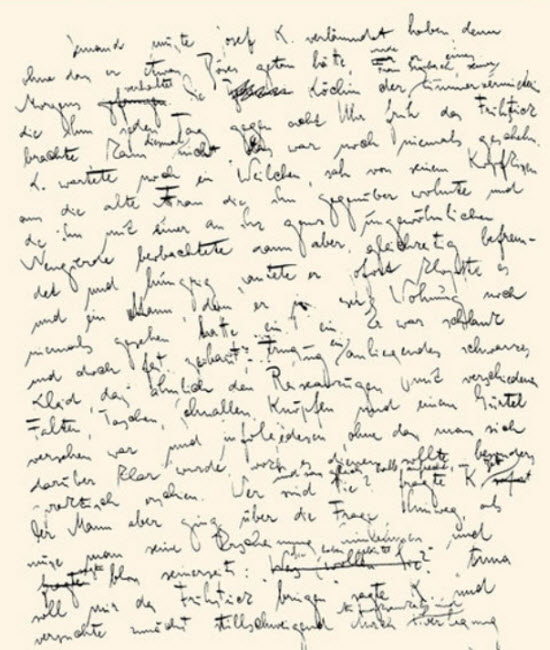 Jemand mußte Josef K. verläumdet haben denn
ohne dass er etwas Böses getan hätte, wurde er eines
Morgens gefangen verhaftet Die Köchin der Zimmervermieterin
die ihm jeden Tag gegen acht Uhr früh das Frühstück
brachte kam diesmal nicht Das war noch niemals geschehn.
K. wartete noch ein Weilchen, sah von seinem Kopfkissen
aus die alte Frau die ihm gegenüber wohnte und
die ihn mit einer an ihr ganz ungewöhnlichen
Neugierde beobachtete dann aber, gleichzeitig befrem-
det und hungrig, läutete er Sofort klopfte es
und ein Mann den er in Wohnung noch
niemals gesehen hatte ein Er war schlank
und doch fest gebaut, trug ein anliegendes schwarzes
Kleid, das ähnlich den Reiseanzügen mit verschiedenen
Falten, Taschen, Schnallen, Knöpfen und einem Gürtel
versehen war und infolgedessen ohne dass man sich
darüber klar wurde, wozu es dienen sollte, besonders
praktisch erschien. Wer sind Sie? fragte K.
Der Mann aber ging über die Frage hinweg, als
müsse man seine Erscheinung hinnehmen und
sagte bloss seinerseits: Anna
soll mir das Frühstück bringen sagte K. und
versuchte zunächst stillschweigend durch Überlegung